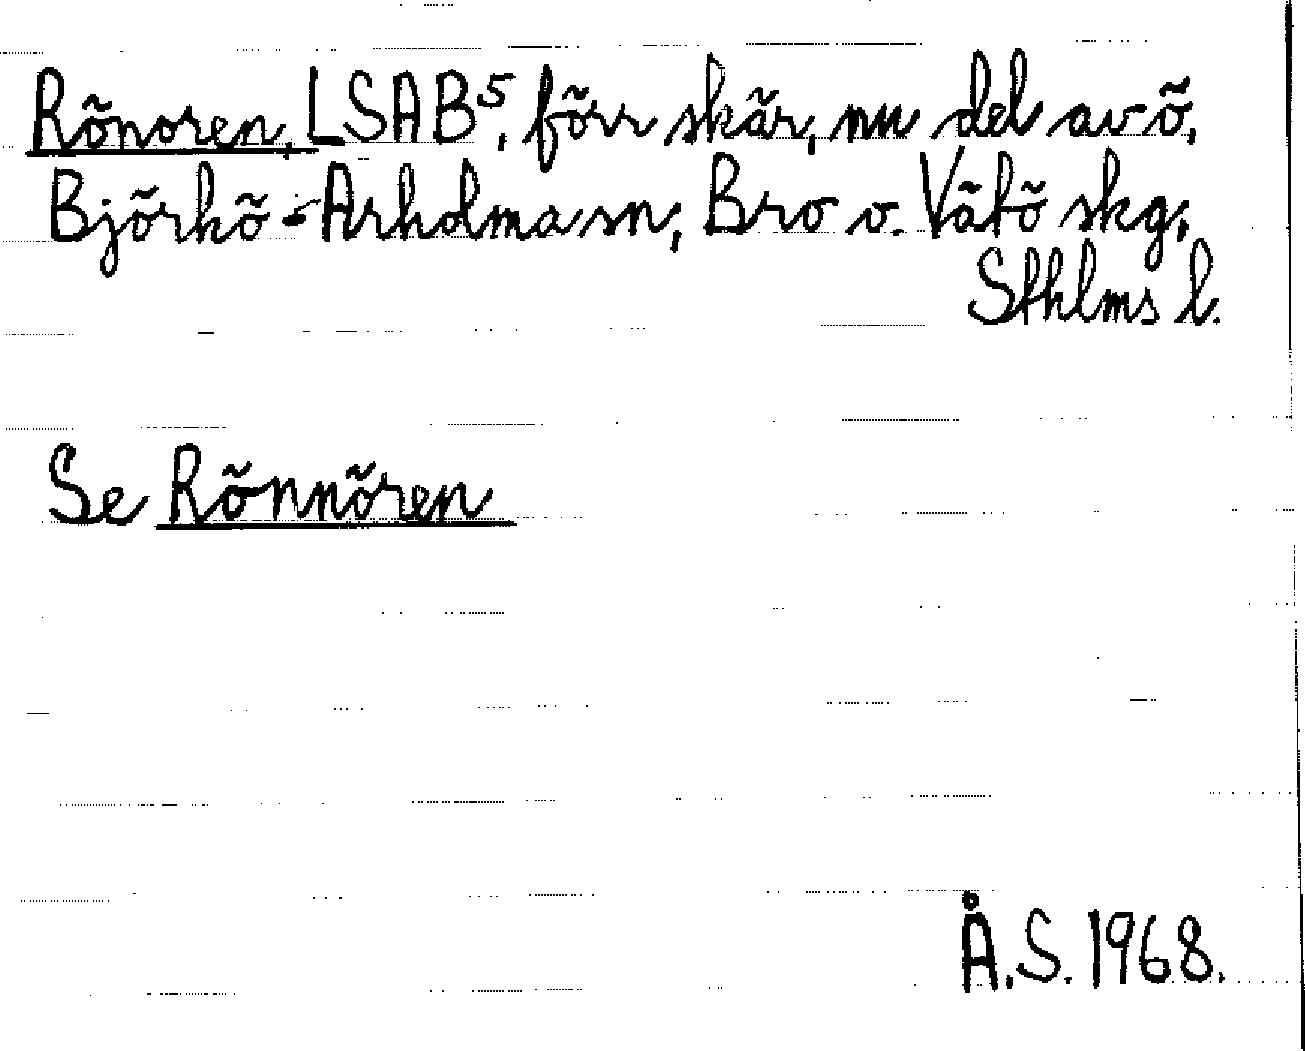 Rönoren, LSAB⁵, förr skär, nu del av ö,
Björkö-Arholma sn, Bro o. Vätö skg,
Sthlms l.
Se Rönnören
Å.S. 1968.